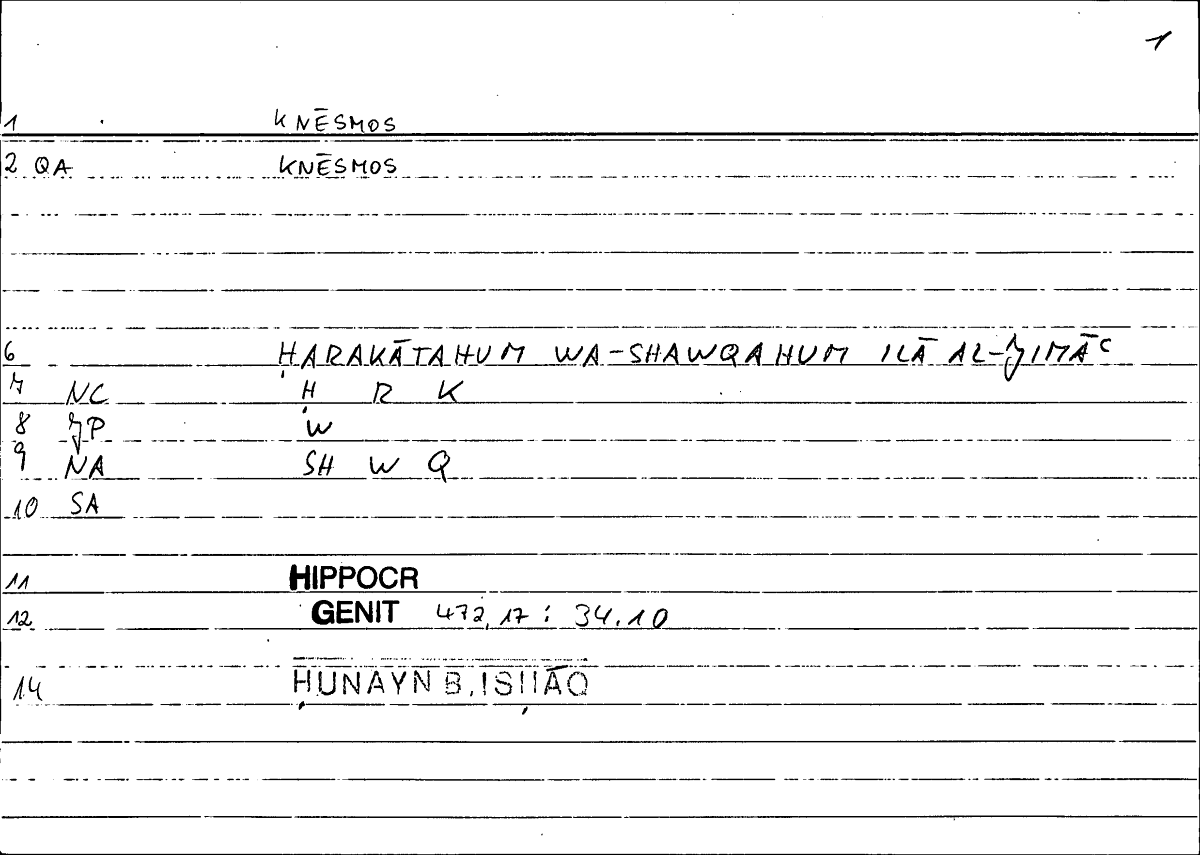 1
1 KNĒSMOS
2 QA KNĒSMOS
6 ḤARAKĀTAHUM WA-SHAWQAHUM ILĀ AL-JIMĀʿ
7 NC Ḥ R K
8 JP W
9 NA SH W Q
10 SA
11 HIPPOCR
12 GENIT 472,17 : 34.10
14 ḤUNAYN B. ISḤĀQ